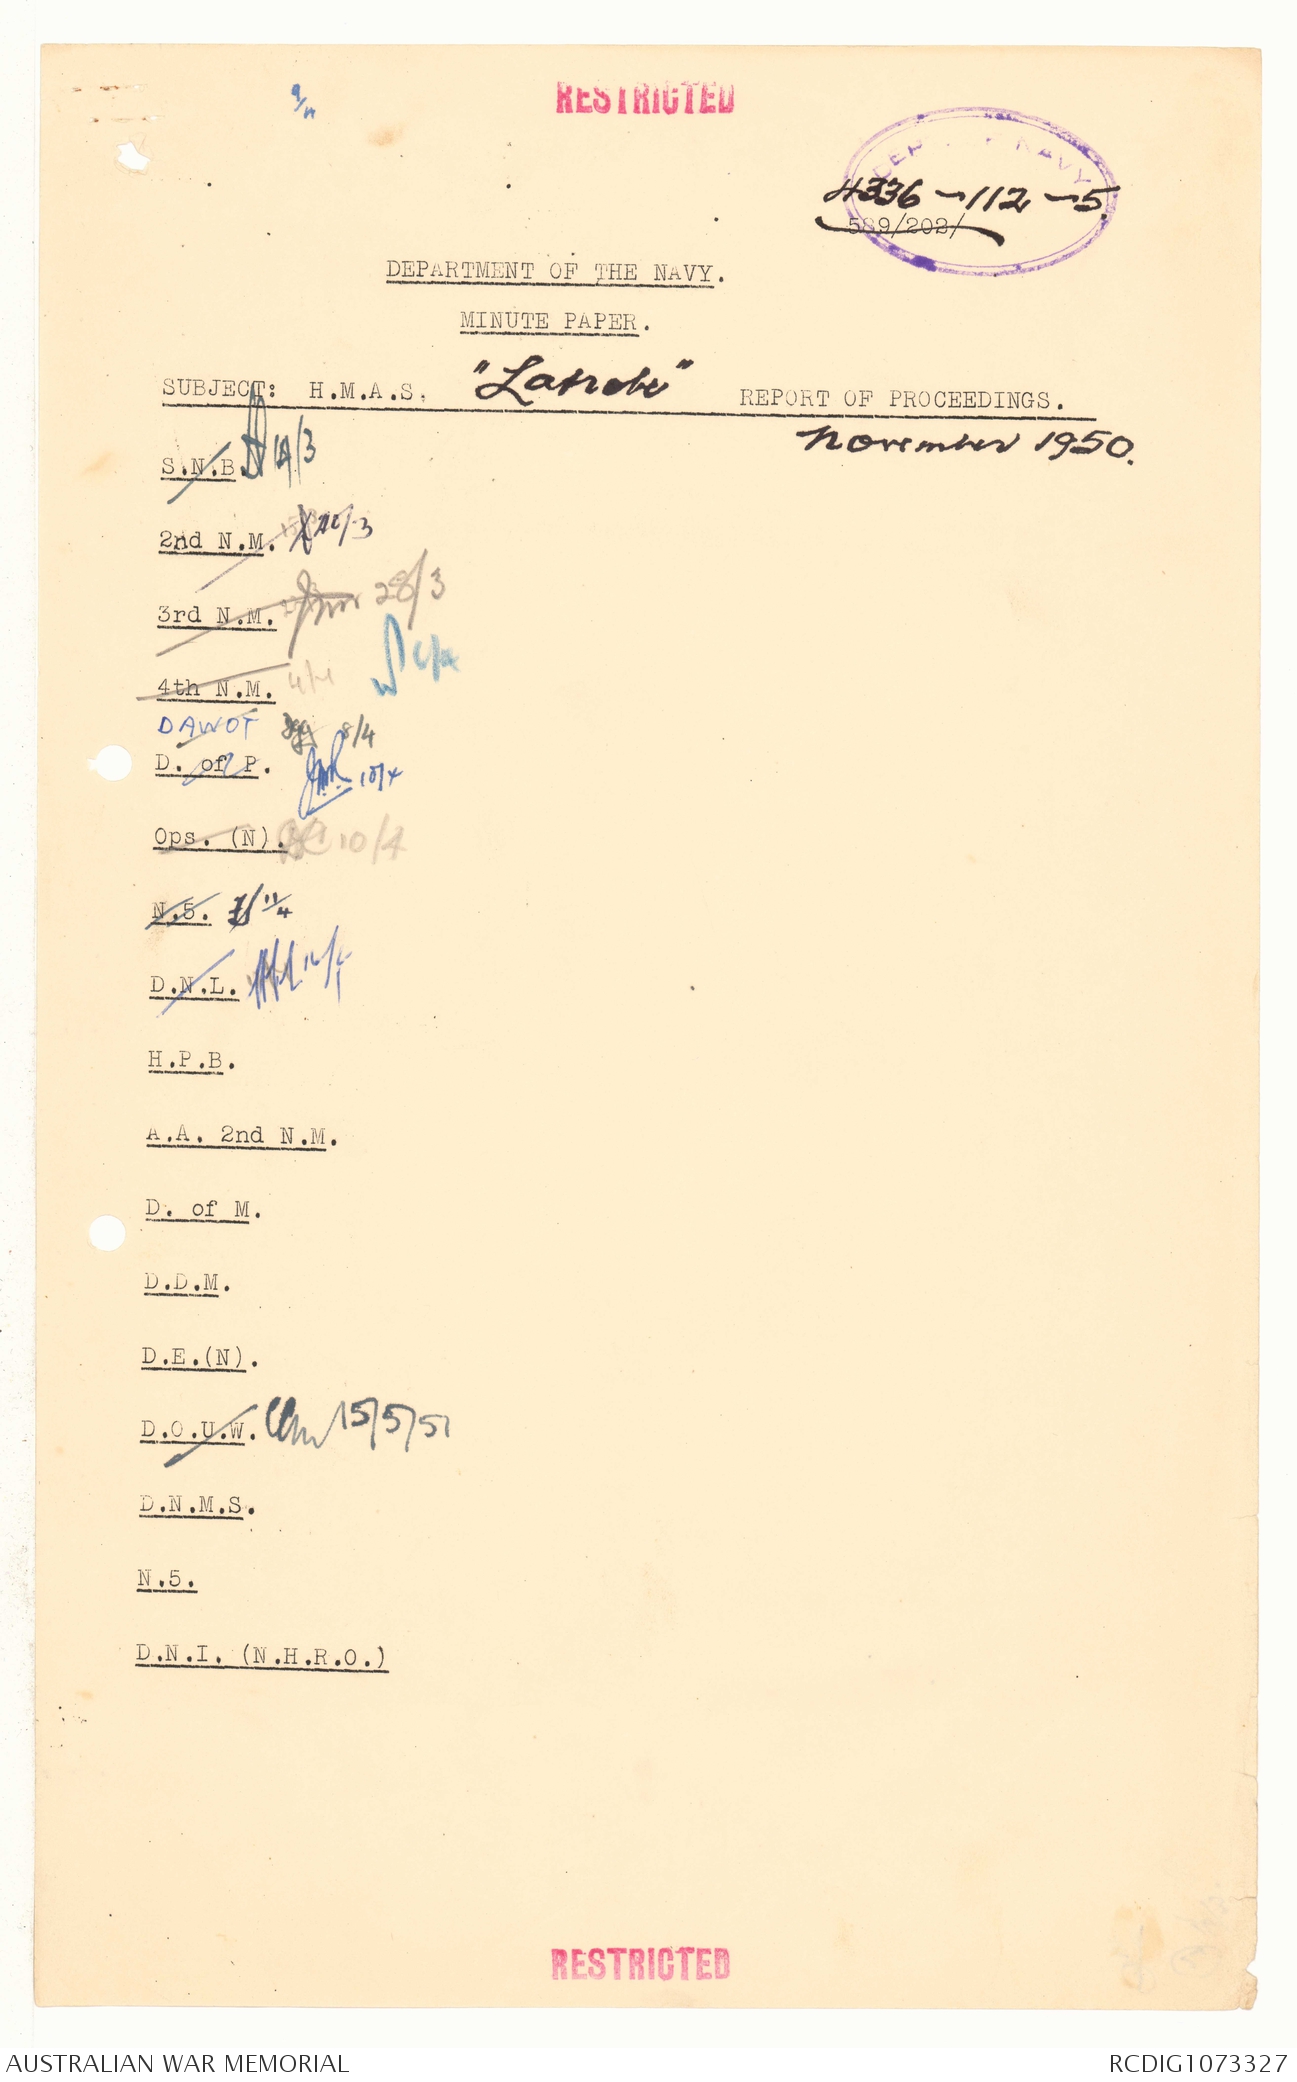 9/11
RESTRICTED
DEP NAVY
4336-112-5.
589/202/
DEPARTMENT OF THE NAVY.
MINUTE PAPER.
SUBJECT: H.M.A.S. "Latrobe" REPORT OF PROCEEDINGS.
November 1950.
S.N.B 14/3
2nd N.M.
3rd N.M. 28/3
4th N.M. 4/4
DAWOT 8/4
D. of P. 10/4
Ops. (N). 10/4
N.5. 11/4
D.N.L.
H.P.B.
A.A. 2nd N.M.
D. of M.
D.D.M.
D.E.(N).
D.O.U.W. 15/5/51
D.N.M.S.
N.5.
D.N.I. (N.H.R.O.)
RESTRICTED
AUSTRALIAN WAR MEMORIAL RCDIG1073327